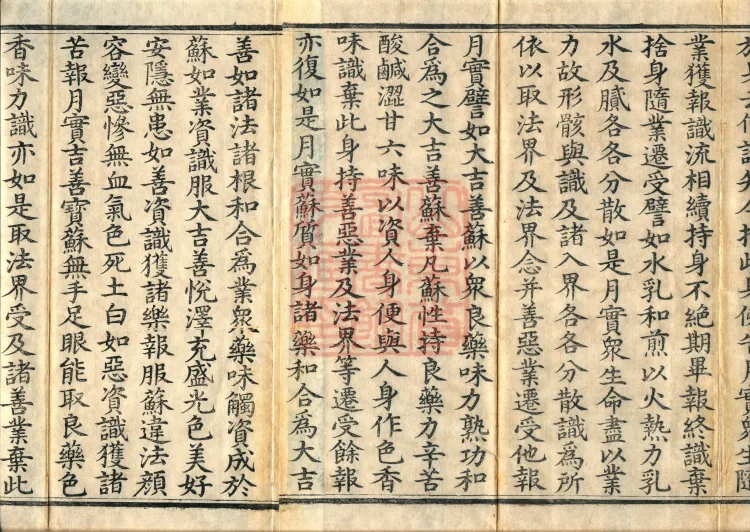 月實衆生隨
業獲報識流相續持身不絕期畢報終識棄
捨身隨業遷受譬如水乳和煎以火熱力乳
水及膩各各分散如是月實衆生命盡以業
力故形骸與識及諸入界各各分散識爲所
依以取法界及法界念并善惡業遷受他報
月實譬如大吉善蘇以衆良藥味力熟功和
合爲之大吉善蘇棄凡蘇性持良藥力辛苦
酸鹹澀甘六味以資人身便與人身作色香
味識棄此身持善惡業及法界等遷受餘報
亦復如是月實蘇質如身諸藥和合爲大吉
善如諸法諸根和合爲業衆藥味觸資成於
蘇如業資識服大吉善悅澤充盛光色美好
安隱無患如善資識獲諸樂報服蘇違法顏
容變惡慘無血氣色死土白如惡資識獲諸
苦報月實吉善寶蘇無手足眼能取良藥色
香味力識亦如是取法界受及諸善業棄此